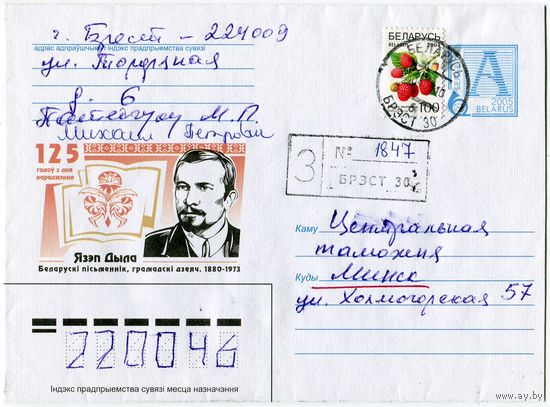 г. Брест - 224009
адрас адпраўшчыка і індэкс прадпрыемства сувязі
ул.
д. 6
М. П.
Михаил Петрович
БЕЛАРУСЬ
100
БЕЛАРУСЬ
БРЭСТ 30
А
2005
BELARUS
З
№ 1847
БРЭСТ 30
125
годоў з дня
нараджэння
Язэп Дыла
Беларускі пісьменнік, грамадскі дзеяч. 1880-1973
Каму Центральная
таможня
Куды Минск
ул. Холмогорская 57
220046
Індэкс прадпрыемства сувязі месца назначэння
www.ay.by